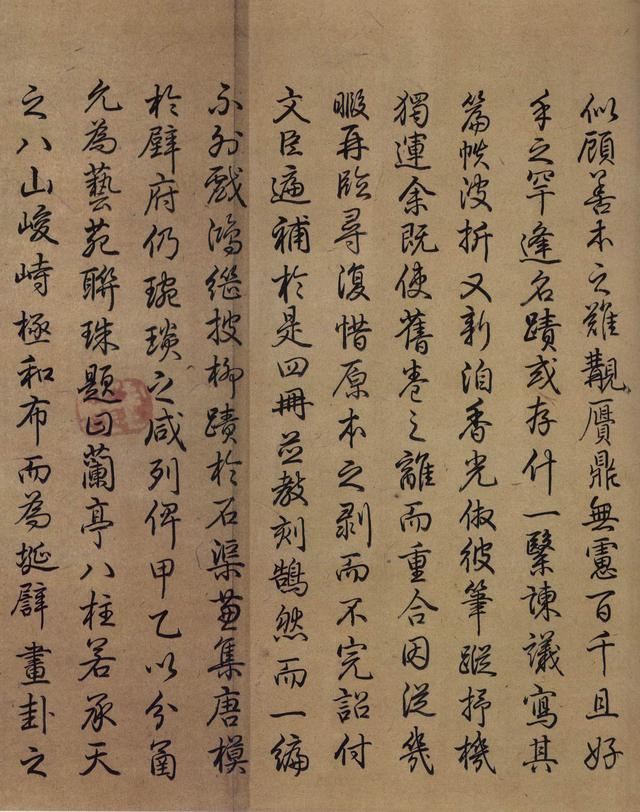 似顧善本之難覯贋鼎無慮百千且好
手之罕逢名蹟或存什一繄諫議寫其
篇帙波折又新洎香光倣彼筆蹤抒機
獨運余既使舊卷之離而重合因從幾
暇再臨尋復惜原本之剥而不完詔付
文臣補於是四冊並教刻鵠然而一編
不外戲鴻繼披柳蹟於石渠薈集唐模
於府仍琬琰之咸列俾甲乙以分函
允為藝苑聯珠題曰蘭亭八柱若承天
之八山峻峙極和布而為埏譬畫卦之